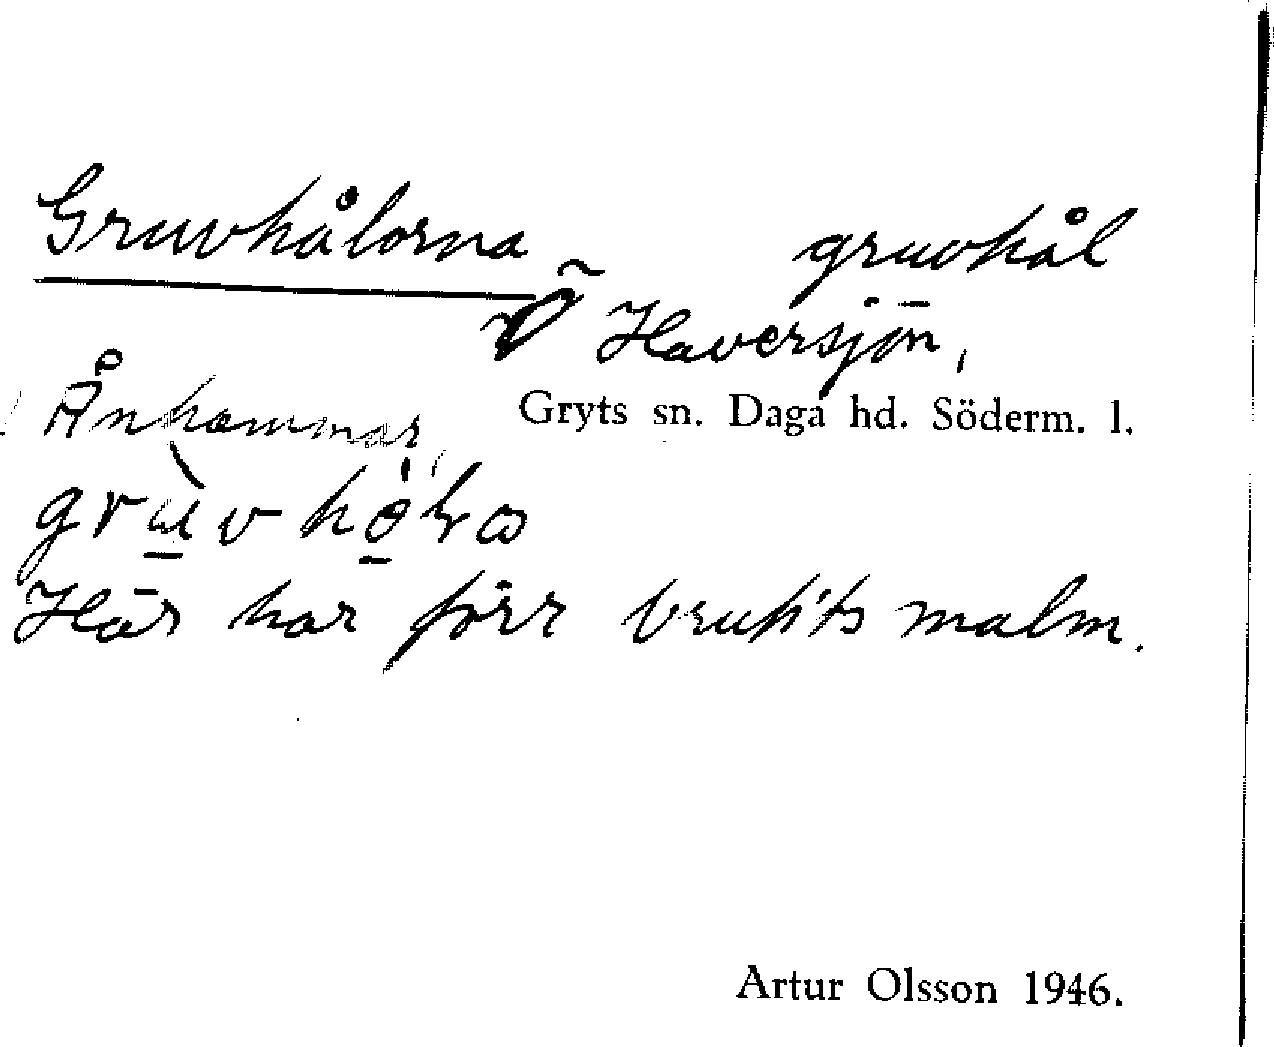 Gruvhålorna gruvhål
Haversjön,
Ånhammar, Gryts sn. Daga hd. Söderm. l.
Här har förr brutits malm.
Artur Olsson 1946.